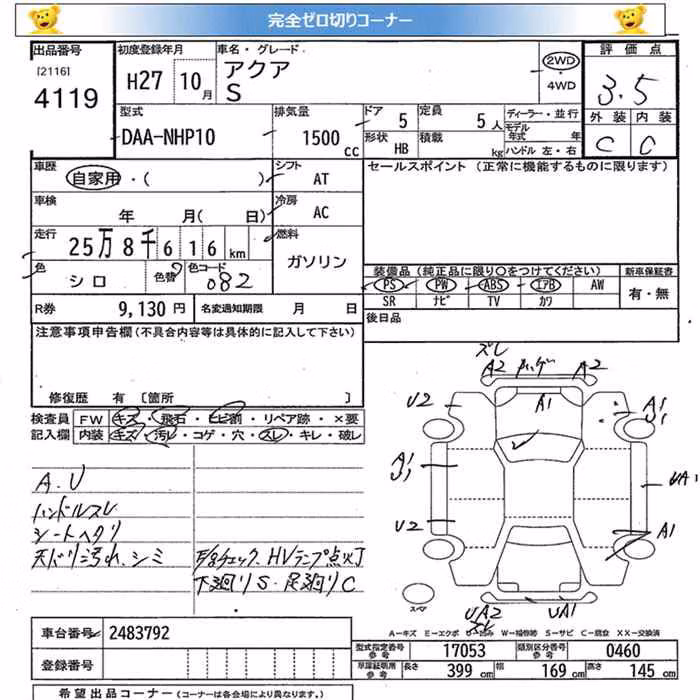 完全ゼロ切りコーナー
出品番号 初度登録年月 車名・グレード 評価点
[2116] H27 10月 アクア 2WD
4119 S 4WD 3.5
型式 排気量 ドア 5 定員 5人 ディーラー・並行 外装 内装
DAA-NHP10 1500cc 形状 HB 積載 kg モデル年式 年 C C
ハンドル 左・右
車歴 自家用・( ) シフト AT セールスポイント (正常に機能するものに限ります)
車検 年 月( 日) 冷房 AC
走行 25万8千616km 燃料 ガソリン
色 シロ 色替 色コード 082
装備品 (純正品に限り○をつけてください) 新車保証書
PS PW ABS エアB AW 有・無
SR ナビ TV カワ
R券 9,130円 名変通知期限 月 日 後日品
注意事項申告欄(不具合内容等は具体的に記入して下さい)
修復歴 有 [箇所 ]
検査員 FW キズ・飛石・ヒビ割・リペア跡・×要
記入欄 内装 キズ・汚レ・コゲ・穴・スレ・キレ・破レ
A.U
ハンドルスレ
シートヘタリ
天バリ汚れ、シミ
チェック、HVランプ点灯
下廻りS・足廻りC
ズレ
A2 A2
U2 A1 A1
U1
A1
U1 UA1
U2 A1
スペア
UA2 UA1
ズレ
A-キズ E-エクボ U-凹み W-補修跡 S-サビ C-腐食 XX-交換済
車台番号 2483792
登録番号
型式指定番号 参考 17053 類別区分番号 参考 0460
車庫証明用 参考 長さ 399cm 幅 169cm 高さ 145cm
希望出品コーナー (コーナーは各会場により異なります。)